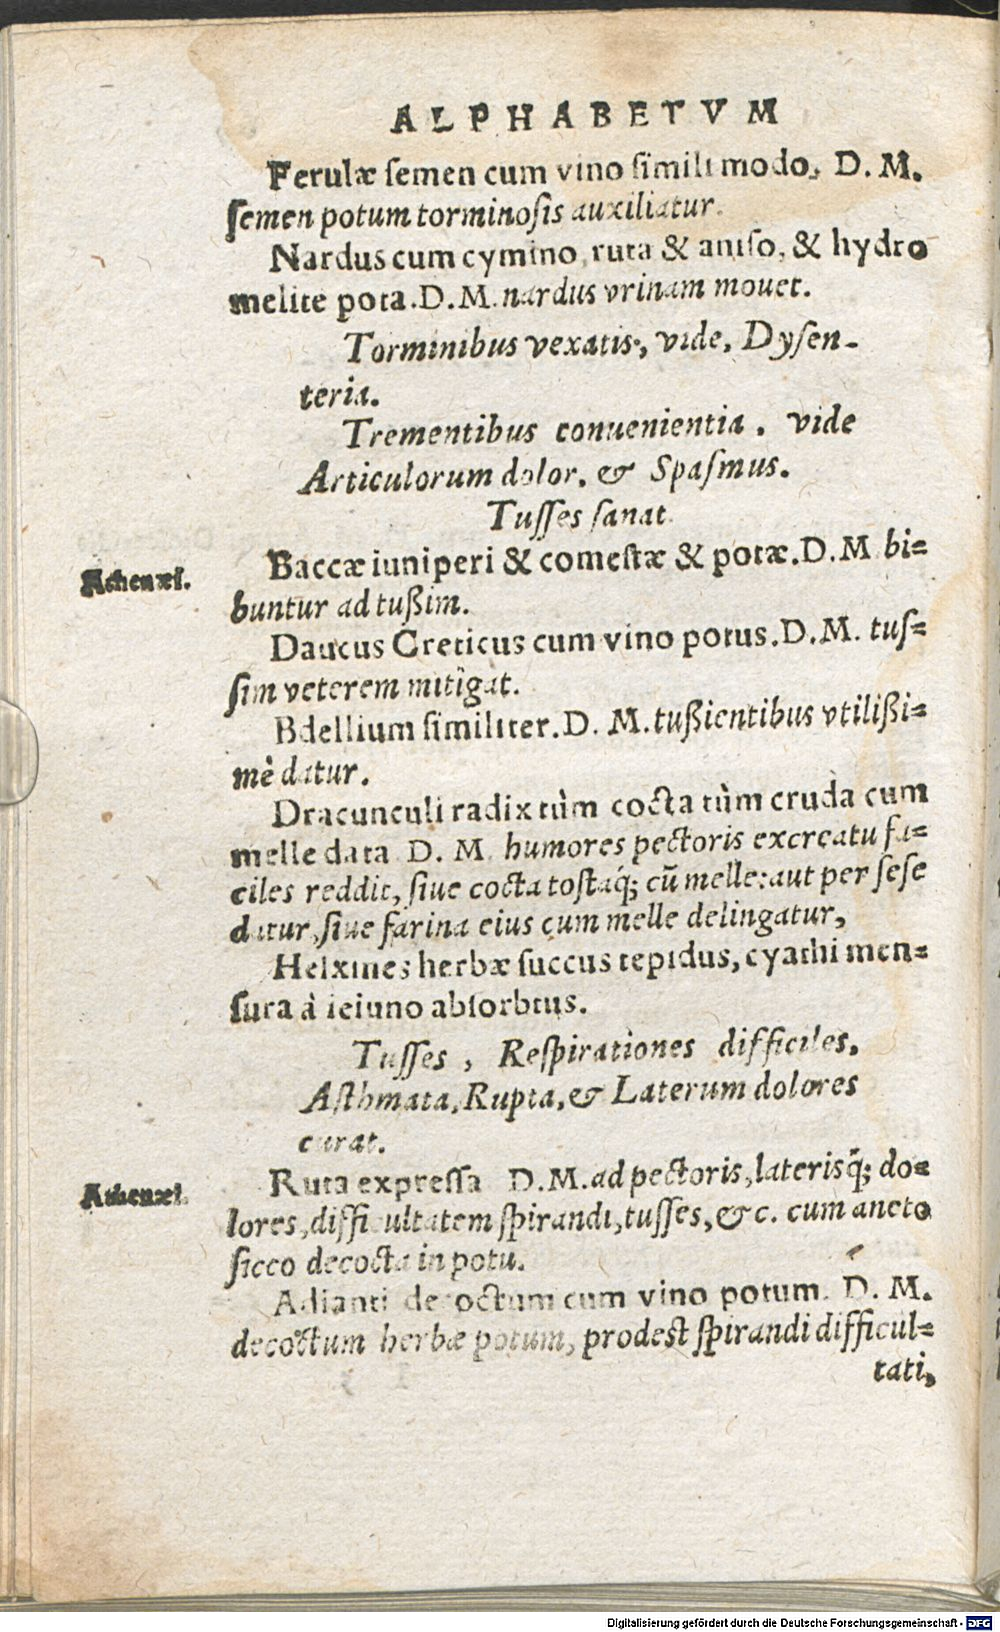 ALPHABETVM
Ferulæ ſemen cum vino ſimili modo, D. M.
ſemen potum torminoſis auxiliatur.
Nardus cum cymino, ruta & aniſo, & hydro
melite pota. D. M. nardus vrinam mouet.
Torminibus vexatis, vide, Dyſen-
teria.
Trementibus conuenientia. vide
Articulorum dolor. & Spaſmus.
Tuſſes ſanat
Baccæ iuniperi & comeſtæ & potæ. D. M bi=
Athenæi.
buntur ad tußim.
Daucus Creticus cum vino potus. D. M. tuſ=
ſim veterem mitigat.
Bdellium ſimiliter. D. M. tußientibus vtilißi=
mè datur.
Dracunculi radix tùm cocta tùm cruda cum
melle data D. M. humores pectoris excreatu fa=
ciles reddit, ſiue cocta toſtaq́; cū melle: aut per ſeſe
datur, ſiue farina eius cum melle delingatur,
Helxines herbæ ſuccus tepidus, cyathi men=
ſura à ieiuno abſorbtus.
Tuſſes, Reſpirationes difficiles.
Aſthmata, Rupta, & Laterum dolores
curat.
Ruta expreſſa D. M. ad pectoris, laterisq́; do=
Athenæi.
lores, difficultatem ſpirandi, tuſſes, &c. cum aneto
ſicco decocta in potu.
Adianti decoctum cum vino potum. D. M.
decoctum herbæ potum, prodeſt ſpirandi difficul=
tati,
Digitalisierung gefördert durch die Deutsche Forschungsgemeinschaft - DFG